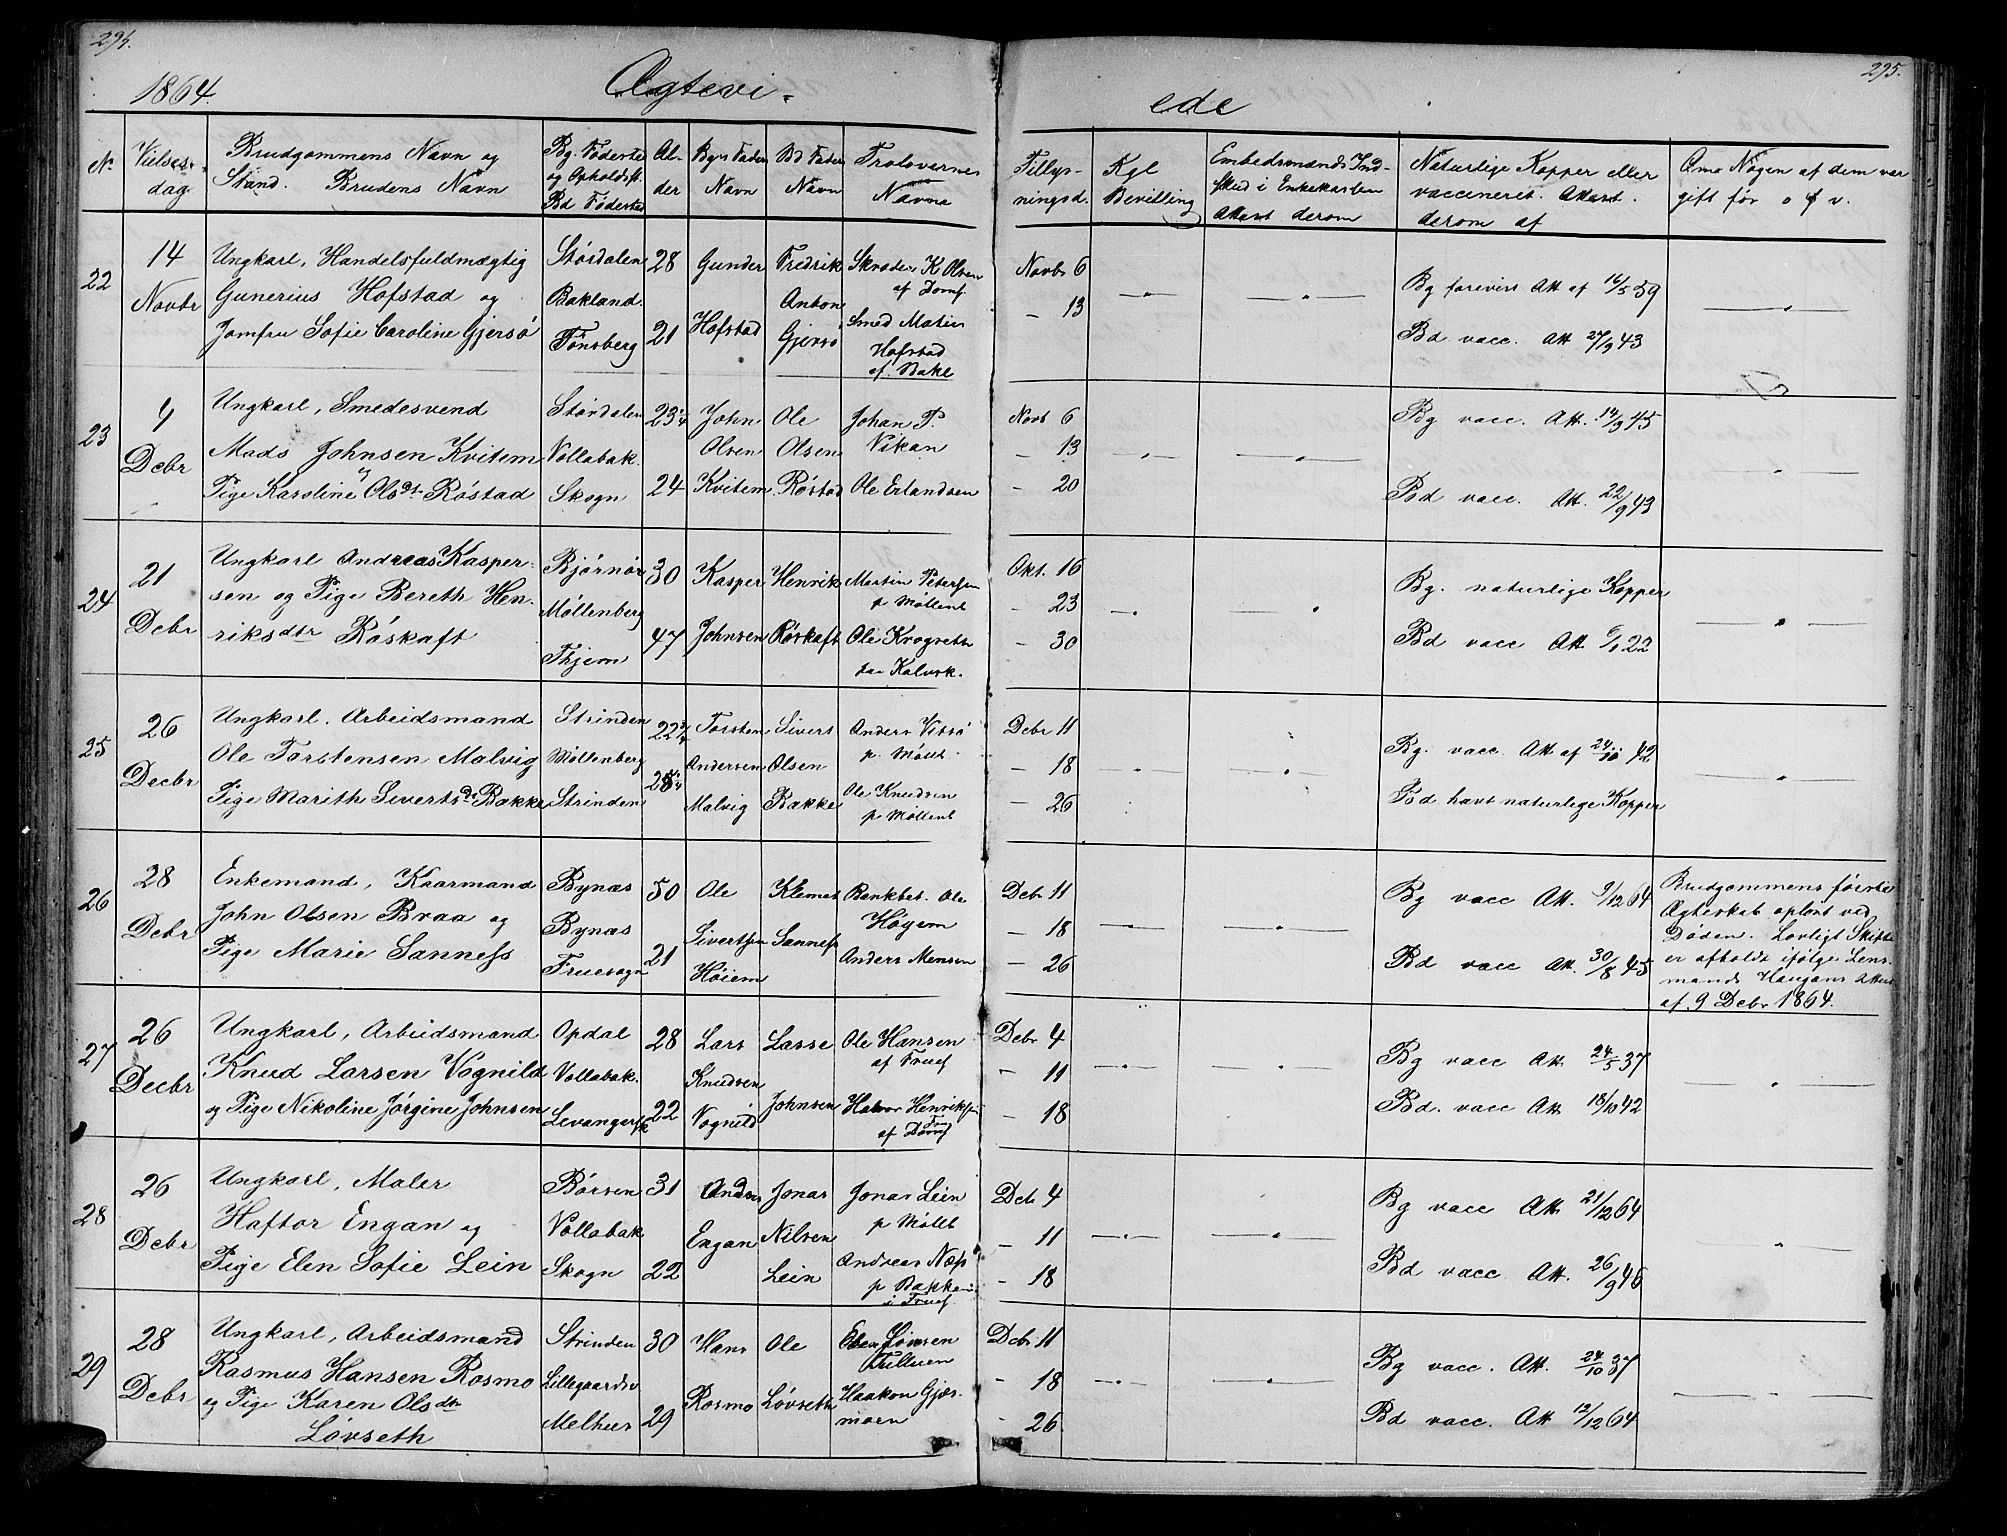 294.
295.
1864.
Ægtevi-
ede
No
Vielses-
dag.
Brudgommens Navn og
Stand. Brudens Navn
Bg. Fødested
og Opholdsst.
Bd Fødested
Al-
der
Bgs Faders
Navn
Bd Faders
Navn
Trolovernes
Navne
Tillys-
ningsd.
Kgl
Bevilling
Embedsmænds Ind-
skud i Enkekassen
Attest derom
Naturlige Kopper eller
vaccineret. Attest.
derom af
Om Nogen af dem var
gift før
22
14
Novbr
Ungkarl, Handelsfuldmægtig
Gunerius Hofstad og
Jomfru Sofie Caroline Gjersö
Størdalen
Bakland.
Tønsberg
28
21
Gunder
Hofstad
Fredrik
Anton
Gjersö
Skræder K Olsen
af Domf
Smed Matias
Hofstad
af. Bakl
Novbr 6
— 13
Bg forevist Att af 16/5 59
Bd vacc. Att 27/9 43
23
4
Decbr
Ungkarl, Smedesvend
Mads Johnsen Kvitem
og
Pige Karoline Olsdt. Røstad
Størdalen
Vollabak.
Skogn
23 3/4
24
John
Olsen
Kvitem
Ole
Olsen
Røstad
Johan P.
Vikan
Ole Erlandsen
Novb 6
— 13
— 20
Bg vacc. Att. 14/9 45
Bd vacc. Att. 22/9 43
24
21
Dcbr
Ungkarl Andreas Kasper-
sen og Pige Bereth Hen-
riksdtr Röskaft
Bjørnør
Møllenberg
Thjem
30
47
Kasper
Johnsen
Henrik
Röskaft
Martin Petersen
p Møllenb
Ole Krogseth
paa Kalvsk.
Okt. 16
— 23
— 30
Bg. naturlige Kopper
Bd vacc Att 6/1 22
25
26
Decbr
Ungkarl. Arbeidsmand
Ole Torstensen Malvig
Pige Marith Siverts Dt Bakke
Strinden
Møllenberg
Strinden
22 3/4
Torsten
Andersen
Malvig
Sivert
Olsen
Bakke
Anders
p. Møllb
Ole Knudsen
p Møllenb
Dcbr 11
— 18
— 26
Bg. vacc Att af 24/10 42
Bd havt naturlige Kopper
26
28
Dcbr
Enkemand, Kaarmand
John Olsen Braa og
Pige Marie Sanness
Bynæs
Bynæs
Fruesogn
50
21
Ole
Sivertsen
Høiem
Klemet
Sanness
Bankbet. Ole
Høyem
Anders Mensen
Dcbr 11
— 18
— 26
Bg vacc Att. 9/12 64
Bd vacc Att. 30/8 45
Brudgommens første
Ægteskab opløst ved
Døden. Lovligt Skifte
er afholdt ifølge Lens-
mands Haugans Attest
af 9 Decbr 1864.
27
26
Decbr
Ungkarl, Arbeidsmand
Knud Larsen Vognild
og Pige Nikoline Jørgine Johnsen
Opdal
Vollabak.
Levanger
28
22
Lars
Knudsen
Vognild
Lasse
Johnsen
Ole Hansen
af Fruef
Halvor Henriksen
af Domf
Dcbr 4
— 11
— 18
Bg vacc Att 24/5 37
Bd. vacc Att 18/10 42
28
26
Dcbr
Ungkarl, Maler
Haftor Engan og
Pige Elen Sofie Lein
Børsen
Vollabak
Skogn
31
22
Anders
Engan
Jonas
Nilsen
Lein
Jonas Lein
p Møllb
Andreas Næss
p Bakken
i Fruef.
Dcb 4
— 11
— 18
Bg vacc Att. 21/12 64
Bd vacc Att. 26/9 46
29
28
Dcbr
Ungkarl, Arbeidsmand
Rasmus Hansen Rosmo
og Pige Karen Olsdtr
Løvseth
Strinden
Lillegaardsv
Melhus
30
29
Hans
Rosmo
Ole
Løvseth
Haakon Gjær-
moen
Dcbr 11
— 18
— 26
Bg vacc. Att. 24/10 37
Bd vacc. Att 12/12 64